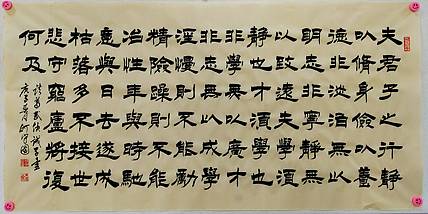 夫君子之行靜
以脩身儉以養
德非淡泊無以
明志非寧靜無
以致遠夫學須
靜也才須學也
非學無以廣才
非志無以成學
淫慢則不能勵
精險躁則不能
冶性年與時馳
意與日去遂成
枯落多不接世
悲守窮廬將復
何及
諸葛武侯誡子書